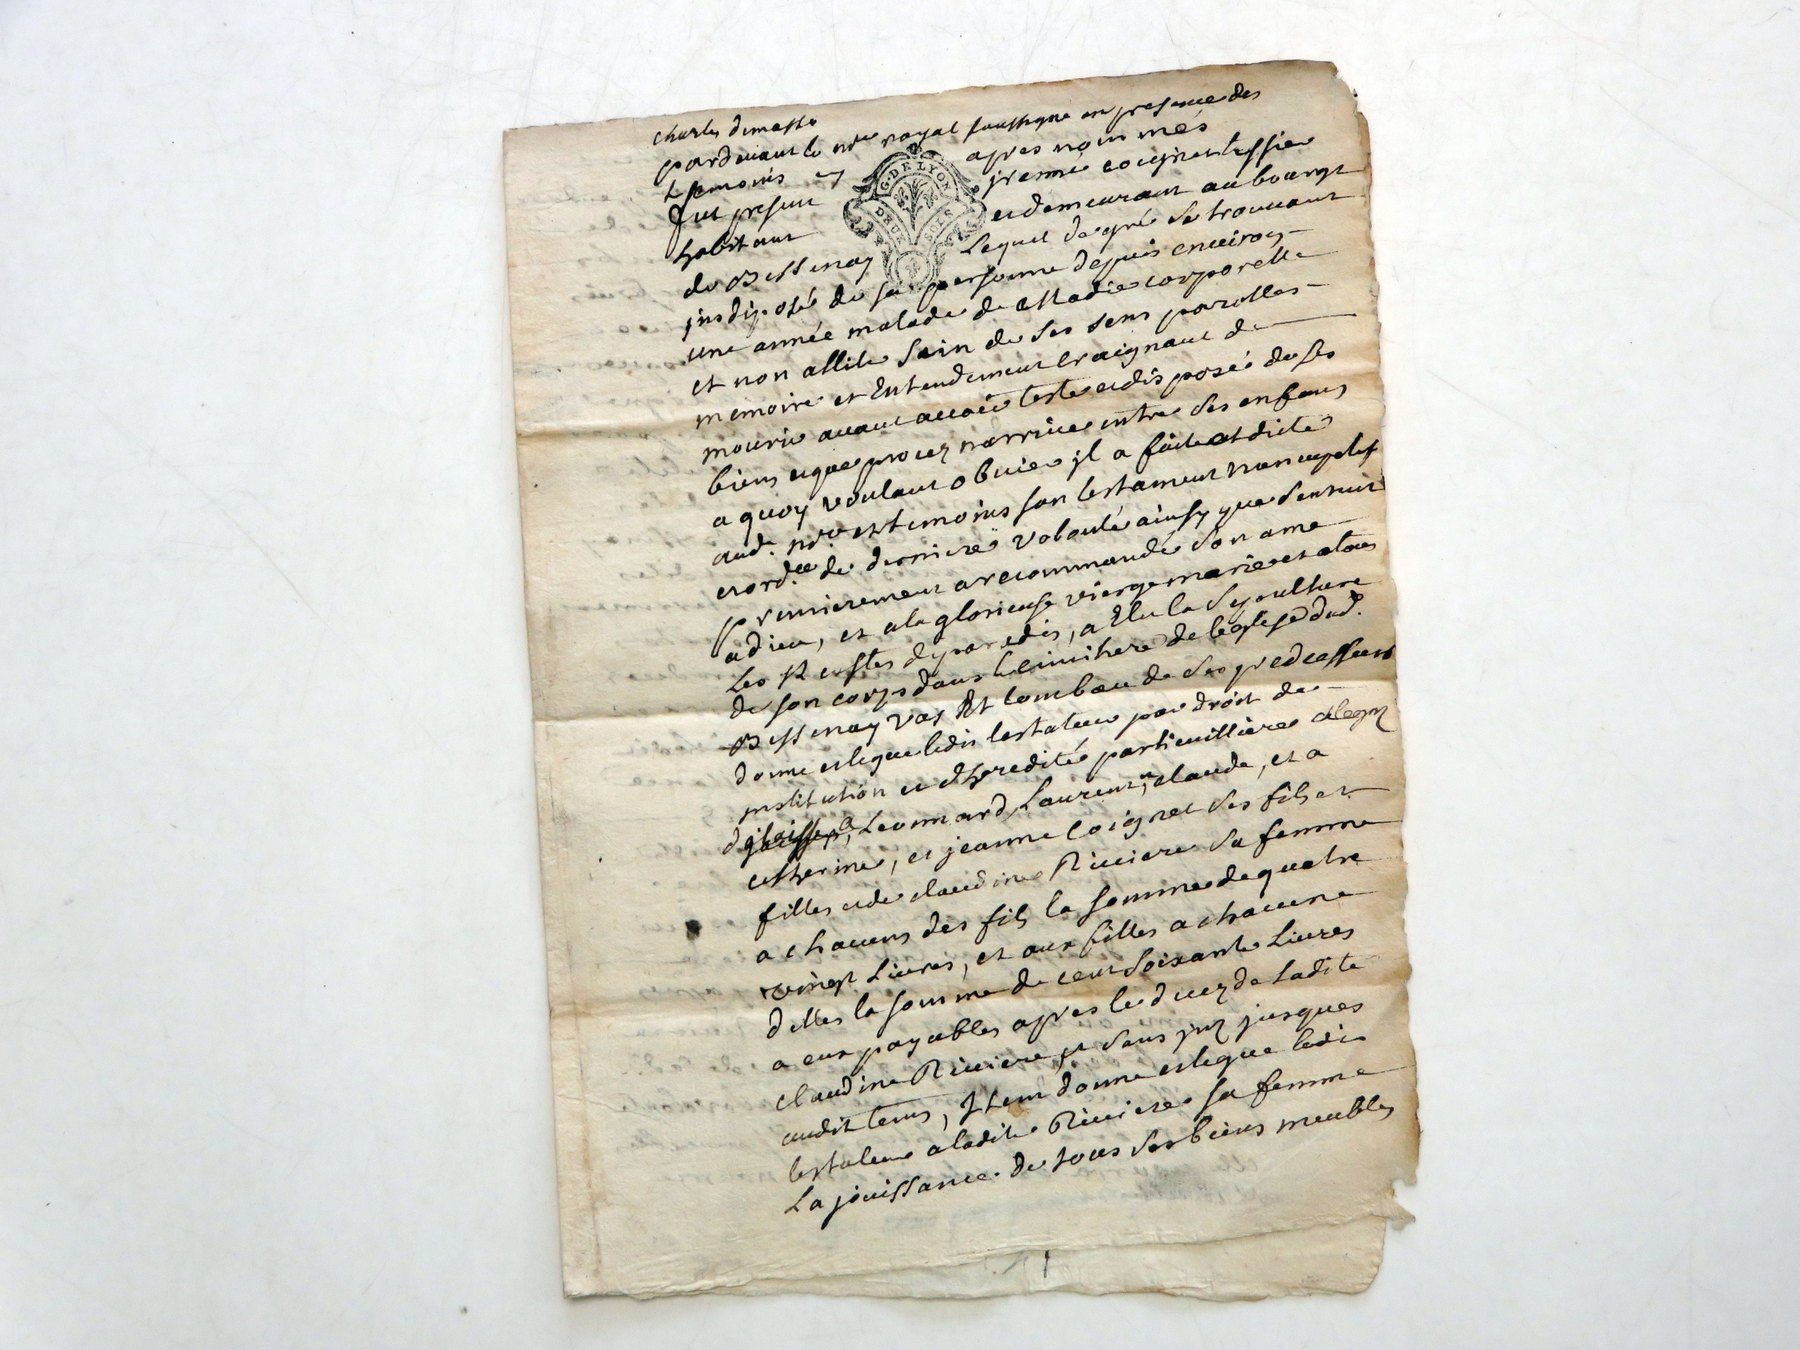 pardevant le no.re royal soussigne en presence des
temoins apres nommés
G. DE LYON
DEUX SOLS
fut present
habitant et demeurant au bourgt
de Bessenay Lequel de gré se trouvant
jndisposé de sa personne depuis environ
une année malade de Maladie corporelle
et non allité sain de ses sens parolles
memoire et Entendement craignant de
mourir avant avoir testé et disposé de ses
biens et que procez n'arrive entre ses enfans
a quoy voulant obvier jl a fait et dicté
aud. no.re et temoins son testament noncupatif
et ord.ce de derniere volonté ainsy que s'ensuit
premierement a recommandé son ame
a dieu, et a la glorieuse vierge marie et a tous
Les
de son corps dans le cimithere de leglise dud.
Bessenay vas Et tombeau de ses predecesseurs
donne et legue ledit testateur par droit de
jnstitution et d'heredité particulliere
Leonnard, Laurent, claude, et a
catherine, et jeanne Coignet ses fils et
filles et de claudine Riviere sa femme
a chacuns des fils la somme de quatre
vingt Livres, et aux filles a chacune
delles la somme de cent soixante Livres
a eux payables apres le decez de Ladite
claudine Riviere et sans jnt jusques
audit tems, Jtem donne et legue ledit
testateur a ladite Riviere sa femme
La jouissance de tous ses biens meubles